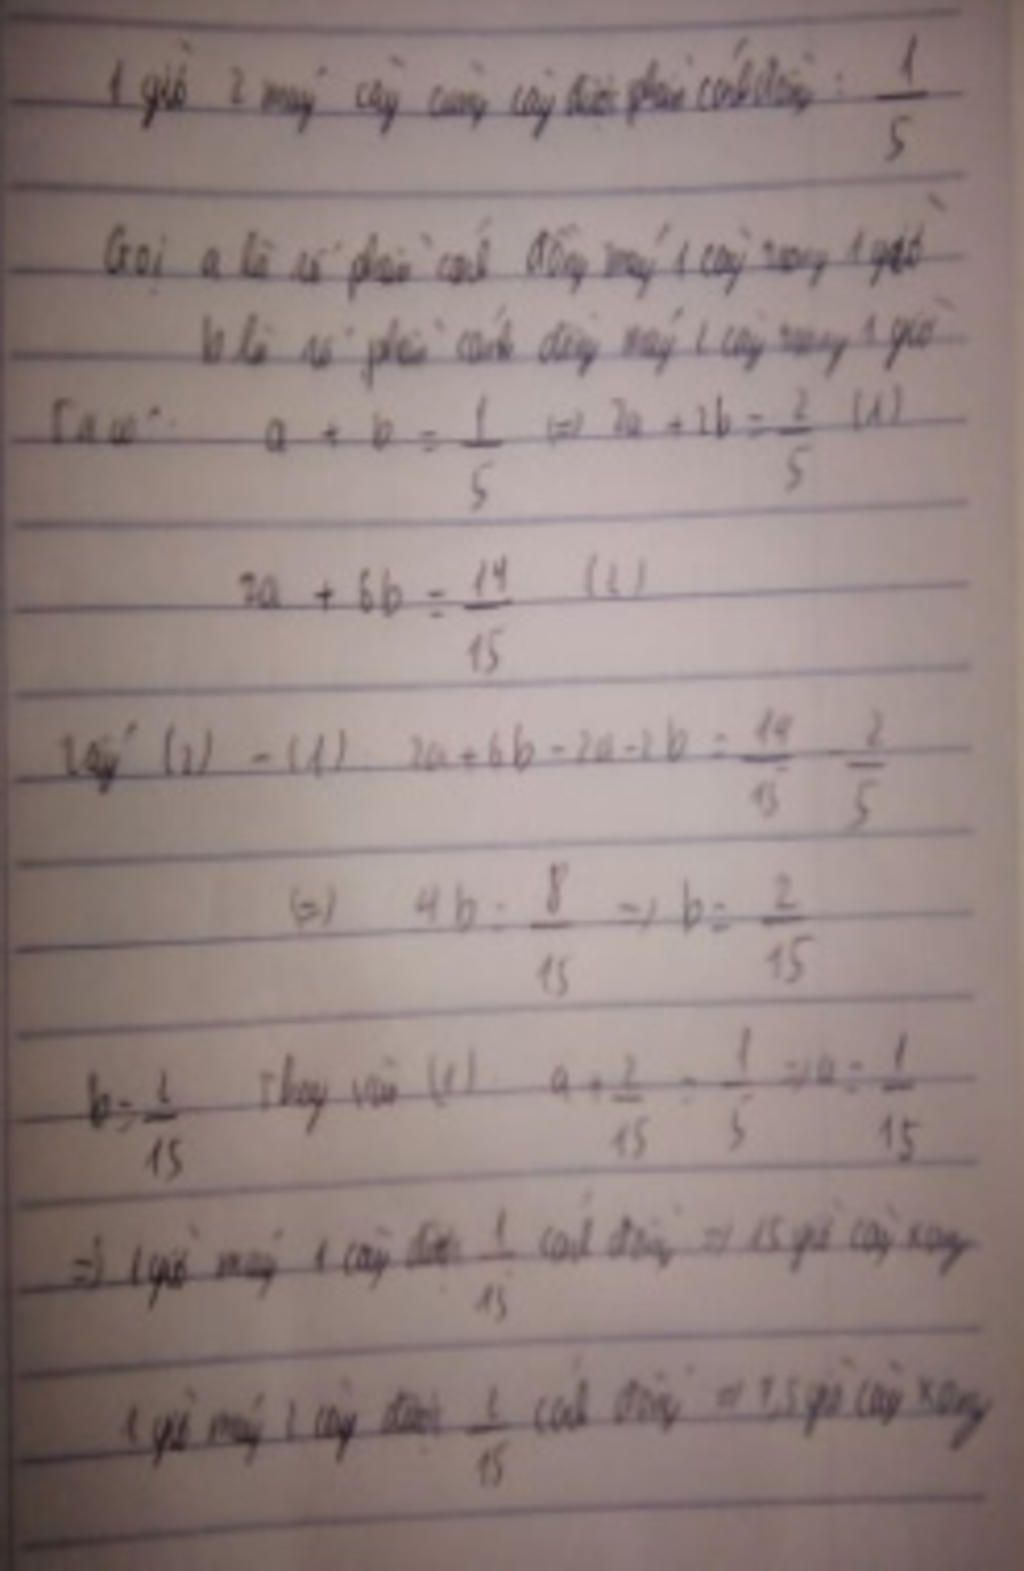 1 giờ 2 máy cày cùng cày được phần cánh đồng : 1/5
Gọi a là số phần cánh đồng máy 1 cày trong 1 giờ
b là số phần cánh đồng máy 2 cày trong 1 giờ
Ta có: a + b = 1/5 (=) 2a + 2b = 2/5 (1)
2a + 6b = 14/15 (2)
Lấy (2) - (1) 2a + 6b - 2a - 2b = 14/15 - 2/5
(=) 4b = 8/15 => b = 2/15
b = 2/15 Thay vào (1) a + 2/15 = 1/5 => a = 1/15
=> 1 giờ máy 1 cày được 1/15 cánh đồng => 15 giờ cày xong
1 giờ máy 2 cày được 2/15 cánh đồng => 7,5 giờ cày xong